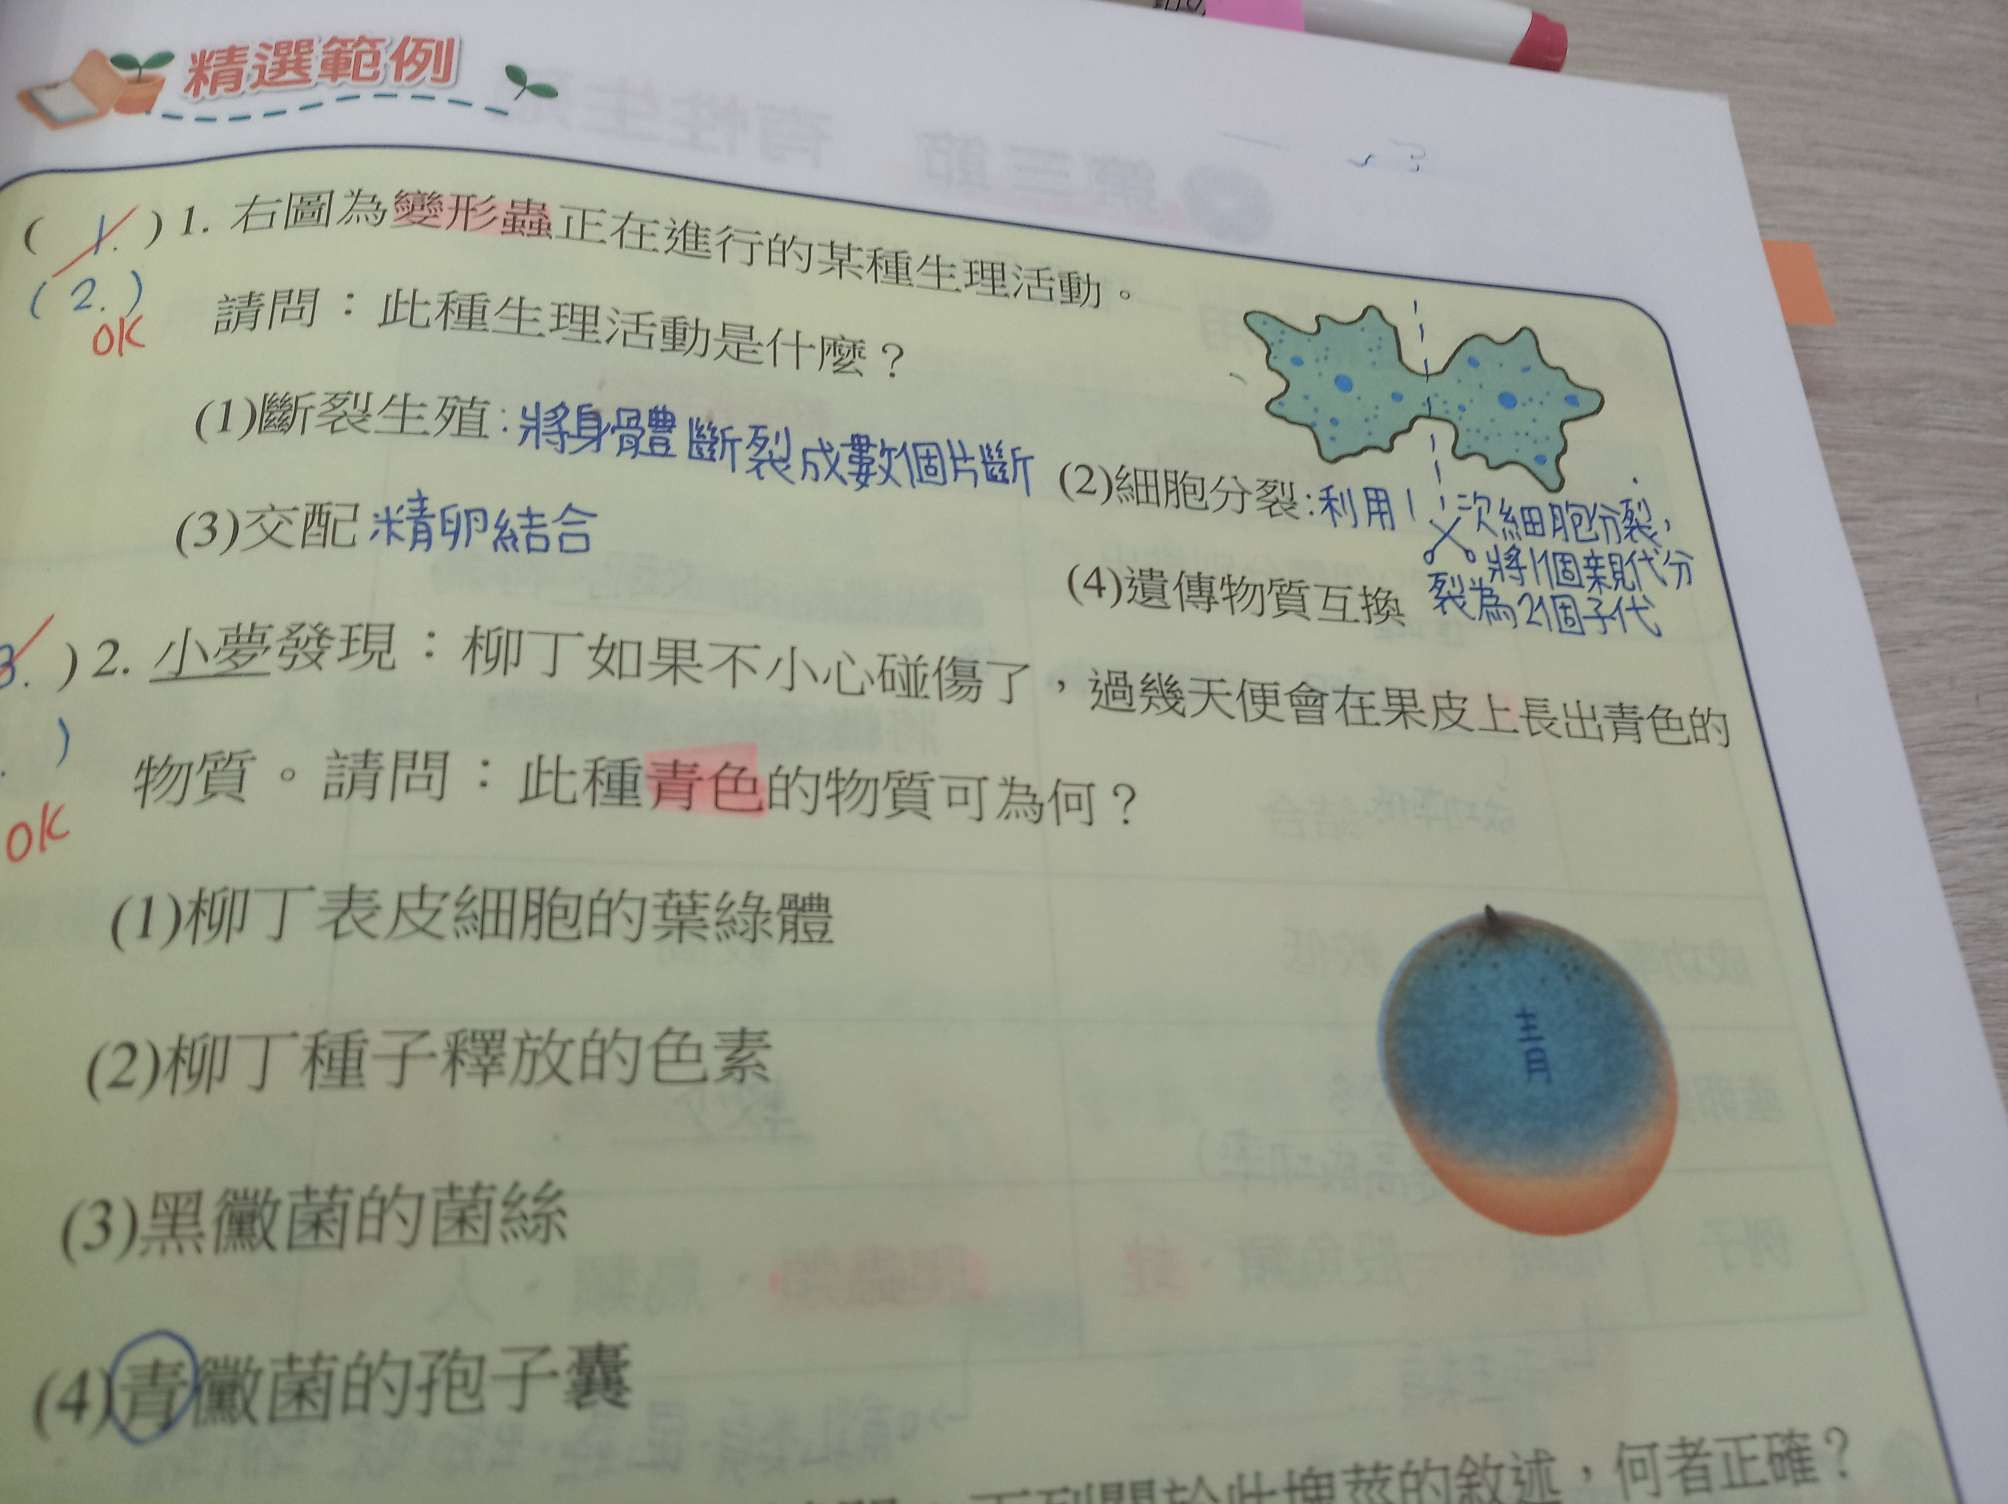 精選範例
( 1. ) 1. 右圖為變形蟲正在進行的某種生理活動。
( 2. )
OK
請問：此種生理活動是什麼？
(1)斷裂生殖：將身體斷裂成數個片斷
(2)細胞分裂：利用1次細胞分裂，
將1個親代分
裂為2個子代
(3)交配 精卵結合
(4)遺傳物質互換
3. ) 2. 小夢發現：柳丁如果不小心碰傷了，過幾天便會在果皮上長出青色的
. )
物質。請問：此種青色的物質可為何？
OK
(1)柳丁表皮細胞的葉綠體
(2)柳丁種子釋放的色素
青
(3)黑黴菌的菌絲
(4)青黴菌的孢子囊
下列關於此塊莖的敘述，何者正確？